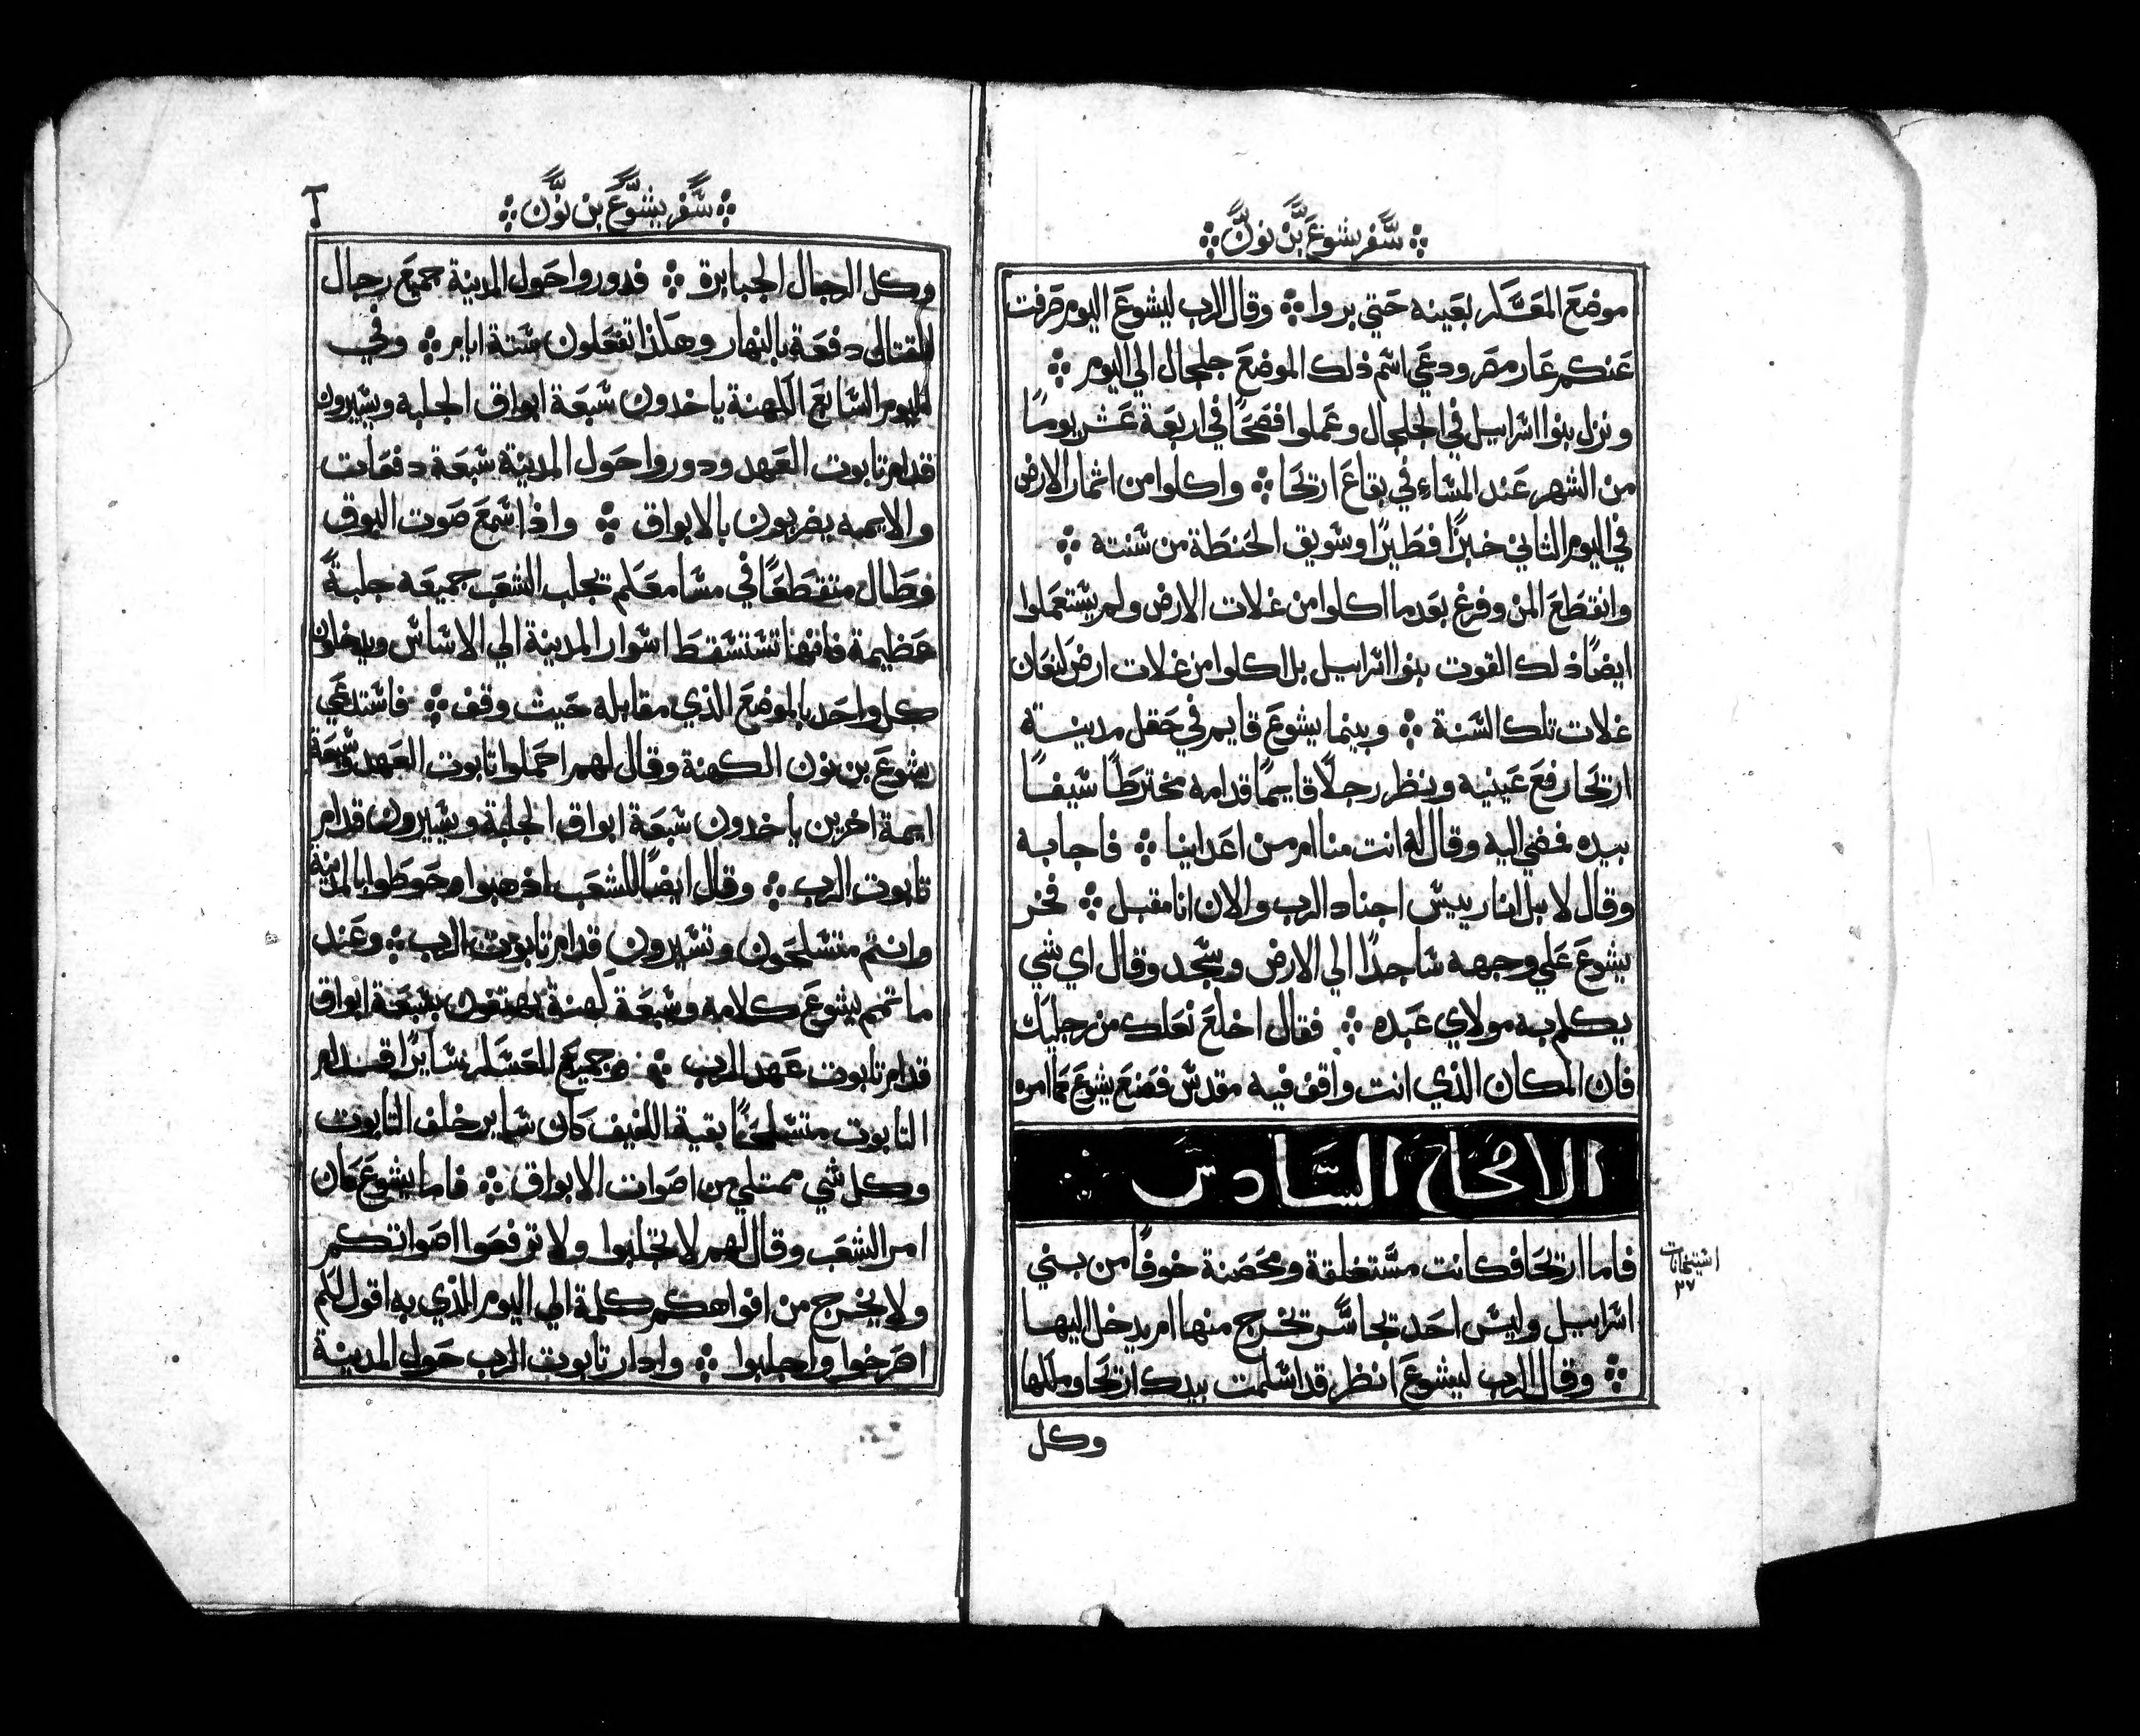 سفر يشوع بن نون
موضع المعسكر بعينه حتي بروا وقال الرب ليشوع اليوم صرفت
عنكم عار مصر ودعي اسم ذلك الموضع جلجال الي اليوم
ونزل بنوا اسراييل في الجلجال وعملوا فصحًا في اربعة عشر يومًا
من الشهر عند المساء في بقاع اريحا واكلوا من اثمار الارض
في اليوم الثاني خبزًا فطيرًا وسويق الحنطة من سنته
وانقطع المن وفرغ بعد ما اكلوا من غلات الارض ولم يستعملوا
ايضًا ذلك القوت بنوا اسراييل بل اكلوا من غلات ارض كنعان
غلات تلك السنة وبينما يشوع قايم في حقل مدينة
اريحا رفع عينيه ونظر رجلًا قايمًا قدامه مخترطًا سيفًا
بيده فمضي اليه وقال له انت منا ام من اعداينا فاجابه
وقال لا بل انا رييس اجناد الرب والان انا مقبل فخر
يشوع علي وجهه ساجدًا الي الارض وسجد وقال اي شي
يكلم به مولاي عبده فقال اخلع نعلك من رجليك
فان المكان الذي انت واقف فيه مقدس فصنع يشوع كما امره
الاصحاح السادس
فاما اريحا فكانت مستغلقة ومحصنة خوفًا من بني
اسراييل وليس احد تجاسر تخرج منها ام يدخل اليها
وقال الرب ليشوع انظر قد اسلمت بيدك اريحا وملكها
وكل
٢٧
سفر يشوع بن نون
وكل الرجال الجبابرة فدوروا حول المدينة جميع رجال
القتال دفعة بالنهار وهكذا تفعلون ستة ايام وفي
اليوم السابع الكهنة ياخدون سبعة ابواق الجلبه ويسيرون
قدام تابوت العهد ودوروا حول المدينة سبعة دفعات
والايمه يضربون بالابواق واذا سمع صوت البوق
وطال متقطعًا في مسامعكم تجلب الشعب جميعه جلبةً
عظيمة فانها تستسقط اسوار المدينة الي الاساس ويدخلون
كل واحد بالموضع الذي مقابله حيث وقف فاستدعي
يشوع بن نون الكهنة وقال لهم احملوا تابوت العهد وسبعة
ايمة اخرين ياخدون سبعة ابواق الجلبة ويسيرون قدام
تابوت الرب وقال ايضًا للشعب اذهبوا وحوطوا بالمدينة
وانتم متسلحون وتسيرون قدام تابوت الرب وعند
ما تمم يشوع كلامه وسبعة كهنة يهتفون بسبعة ابواق
قدام تابوت عهد الرب وجميع العسكر سايرًا قدام
التابوت متسلحًا بقية اللفيف كان ساير خلف التابوت
وكل شي ممتلي من اصوات الابواق فاما يشوع كان
امر الشعب وقال لهم لا تجلبوا ولا ترفعوا اصواتكم
ولا يخرج من افواهكم كلمة الي اليوم الذي به اقول لكم
اصرخوا واجلبوا وادار تابوت الرب حول المدينة